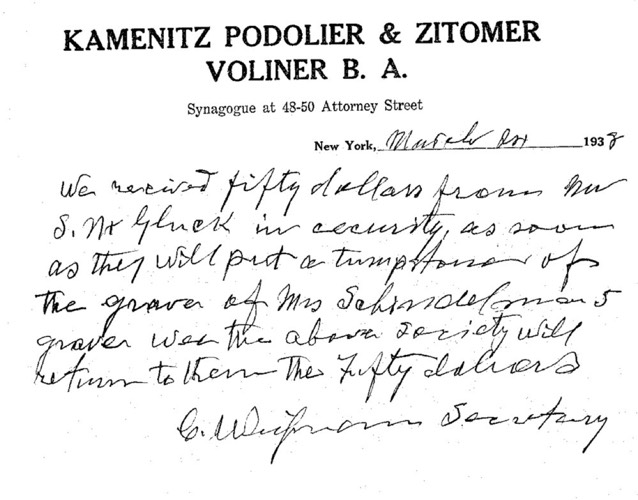 KAMENITZ PODOLIER & ZITOMER
VOLINER B. A.
Synagogue at 48-50 Attorney Street
New York, March 1938
We received fifty dollars from Mr
S. Gluck in security, as soon
as they will put a tumpstone of
the graver of Mrs Schindelmans
graver wee the above society will
return to them the Fifty dolars
C. Secretary